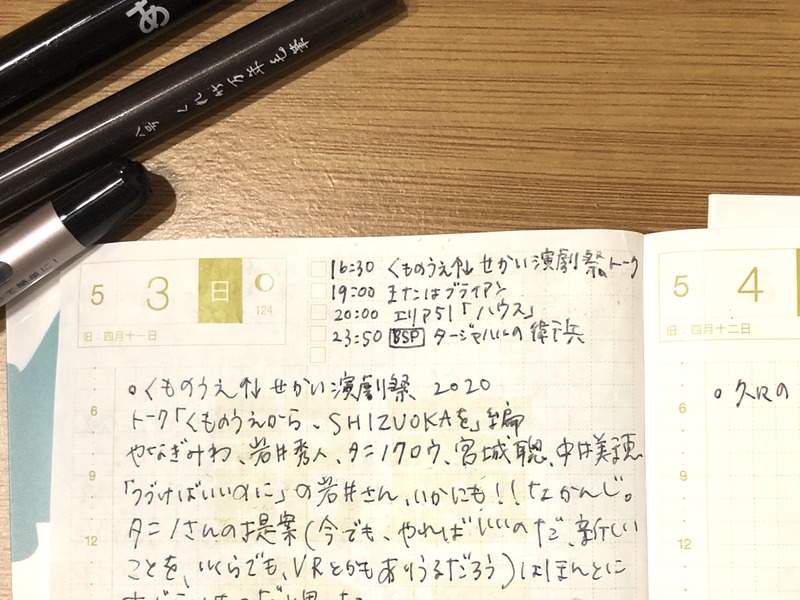 あ
くれ竹万年毛筆
で簡単に!
5 3 日
124
旧:四月十一日
16:30 くものうえ⇅せかい演劇祭トーク
19:00 またはブライアン
20:00 エリア51「ハウス」
23:50 BSP タージマハルの衛兵
6
9
12
○くものうえ⇅せかい演劇祭 2020
トーク「くものうえから、SHIZUOKAを」編
やなぎみわ、岩井秀人、タニノクロウ、宮城聰、中井美穂
「つづければいいのに」の岩井さん、いかにも!!なかんじ。
タニノさんの提案(今でも、やればいいのだ、新しい
ことを、いくらでも、VRとかもありうるだろう)はほんとに
5 4
旧:四月十二日
6
9
12
○久々の